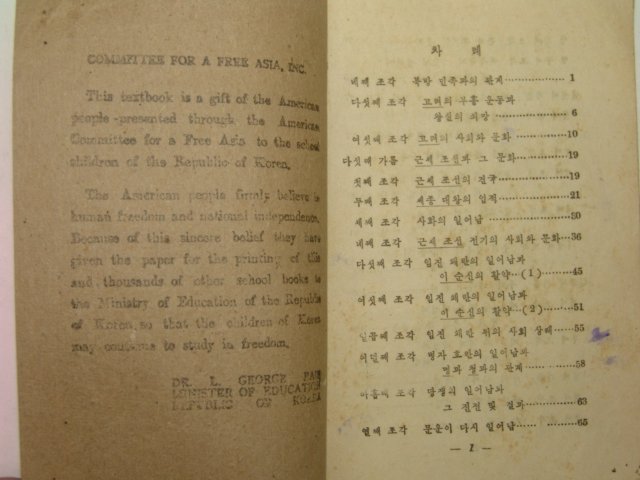 COMMITTEE FOR A FREE ASIA, INC.
This textbook is a gift of the American
people presented through the American
Committee for a Free Asia to the school
children of the Republic of Korea.
The American people firmly believe in
human freedom and national independence.
Because of this sincere belief they have
given the paper for the printing of this
and thousands of other school books to
the Ministry of Education of the Republic
of Korea, so that the children of Korea
may continue to study in freedom.
DR. L. GEORGE PAIK
MINISTER OF EDUCATION
REPUBLIC OF KOREA
차 례
네째 조각 북방 민족과의 관계 1
다섯째 조각 고려의 부흥 운동과
왕실의 희망 6
여섯째 조각 고려의 사회와 문화 10
다섯째 가름 근세 조선과 그 문화 19
첫째 조각 근세 조선의 건국 19
두째 조각 세종 대왕의 업적 21
세째 조각 사화의 일어남 30
네째 조각 근세 조선 전기의 사회와 문화 36
다섯째 조각 임진 왜란의 일어남과
이 순신의 활약 (1) 45
여섯째 조각 임진 왜란의 일어남과
이 순신의 활약 (2) 51
일곱째 조각 임진 왜란 뒤의 사회 상태 55
여덟째 조각 병자 호란의 일어남과
명과 청과의 관계 58
아홉째 조각 당쟁의 일어남과
그 진전 및 결과 63
열째 조각 문운이 다시 일어남 65
— 1 —